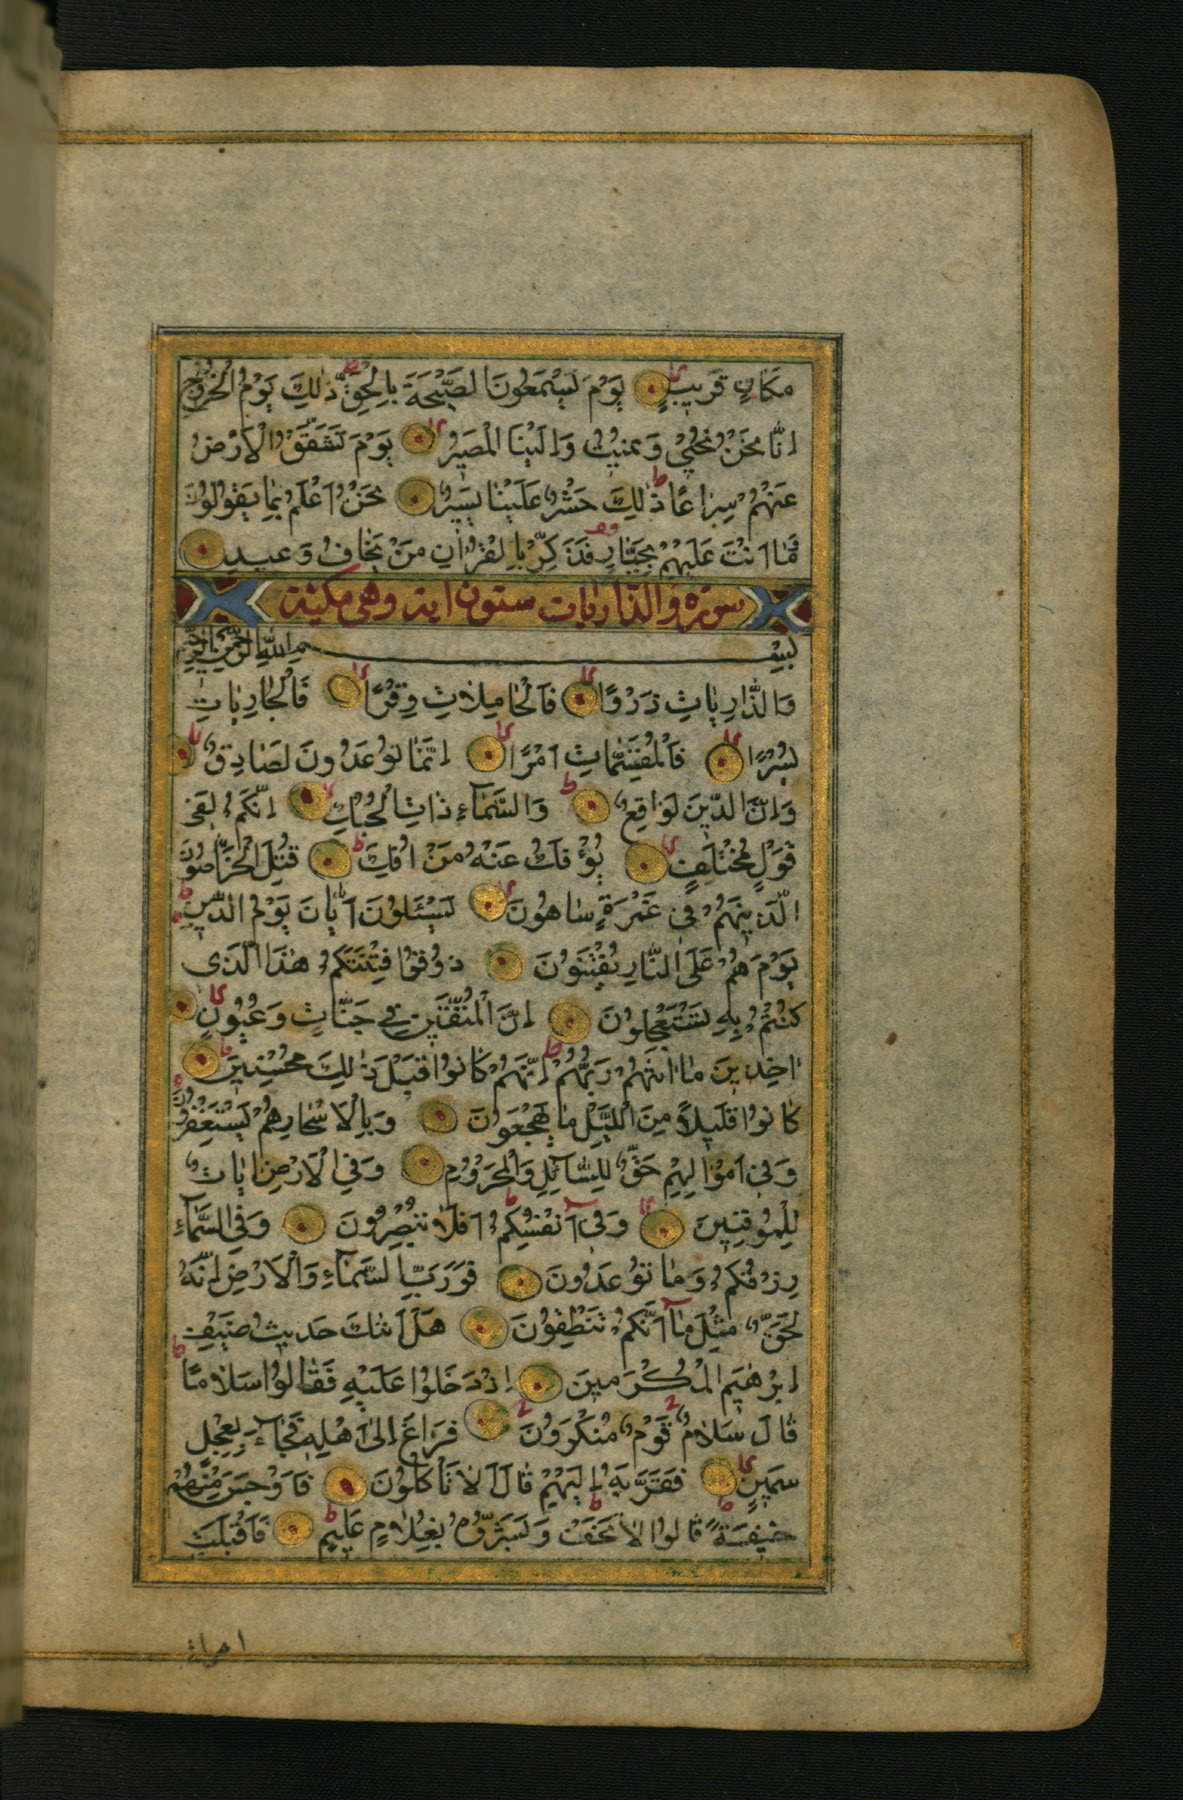 مَكَانٍ قَرِيبٍ يَوْمَ يَسْمَعُونَ الصَّيْحَةَ بِالْحَقِّ ذٰلِكَ يَوْمُ الْخُرُوجِ
اِنَّا نَحْنُ نُحْيِي وَنُمِيتُ وَاِلَيْنَا الْمَصِيرُ يَوْمَ تَشَقَّقُ الْاَرْضُ
عَنْهُمْ سِرَاعًا ذٰلِكَ حَشْرٌ عَلَيْنَا يَسِيرٌ نَحْنُ اَعْلَمُ بِمَا يَقُولُونَ
وَمَا اَنْتَ عَلَيْهِمْ بِجَبَّارٍ فَذَكِّرْ بِالْقُرْاٰنِ مَنْ يَخَافُ وَعِيدِ
سورة والذاريات ستون اية وهي مكية
بِسْمِ اللّٰهِ الرَّحْمٰنِ الرَّحِيمِ
وَالذَّارِيَاتِ ذَرْوًا فَالْحَامِلَاتِ وِقْرًا فَالْجَارِيَاتِ
يُسْرًا فَالْمُقَسِّمَاتِ اَمْرًا اِنَّمَا تُوعَدُونَ لَصَادِقٌ
وَاِنَّ الدِّينَ لَوَاقِعٌ وَالسَّمَاءِ ذَاتِ الْحُبُكِ اِنَّكُمْ لَفِي
قَوْلٍ مُخْتَلِفٍ يُؤْفَكُ عَنْهُ مَنْ اُفِكَ قُتِلَ الْخَرَّاصُونَ
الَّذِينَ هُمْ فِي غَمْرَةٍ سَاهُونَ يَسْئَلُونَ اَيَّانَ يَوْمُ الدِّينِ
يَوْمَ هُمْ عَلَى النَّارِ يُفْتَنُونَ ذُوقُوا فِتْنَتَكُمْ هٰذَا الَّذِي
كُنْتُمْ بِهِ تَسْتَعْجِلُونَ اِنَّ الْمُتَّقِينَ فِي جَنَّاتٍ وَعُيُونٍ
اٰخِذِينَ مَا اٰتٰهُمْ رَبُّهُمْ اِنَّهُمْ كَانُوا قَبْلَ ذٰلِكَ مُحْسِنِينَ
كَانُوا قَلِيلًا مِنَ الَّيْلِ مَا يَهْجَعُونَ وَبِالْاَسْحَارِ هُمْ يَسْتَغْفِرُونَ
وَفِي اَمْوَالِهِمْ حَقٌّ لِلسَّائِلِ وَالْمَحْرُومِ وَفِي الْاَرْضِ اٰيَاتٌ
لِلْمُوقِنِينَ وَفِي اَنْفُسِكُمْ اَفَلَا تُبْصِرُونَ وَفِي السَّمَاءِ
رِزْقُكُمْ وَمَا تُوعَدُونَ فَوَرَبِّ السَّمَاءِ وَالْاَرْضِ اِنَّهُ
لَحَقٌّ مِثْلَ مَا اَنَّكُمْ تَنْطِقُونَ هَلْ اَتٰكَ حَدِيثُ ضَيْفِ
اِبْرٰهِيمَ الْمُكْرَمِينَ اِذْ دَخَلُوا عَلَيْهِ فَقَالُوا سَلَامًا
قَالَ سَلَامٌ قَوْمٌ مُنْكَرُونَ فَرَاغَ اِلٰى اَهْلِهِ فَجَاءَ بِعِجْلٍ
سَمِينٍ فَقَرَّبَهُ اِلَيْهِمْ قَالَ اَلَا تَأْكُلُونَ فَاَوْجَسَ مِنْهُمْ
خِيفَةً قَالُوا لَا تَخَفْ وَبَشَّرُوهُ بِغُلَامٍ عَلِيمٍ فَاَقْبَلَتِ
امراته